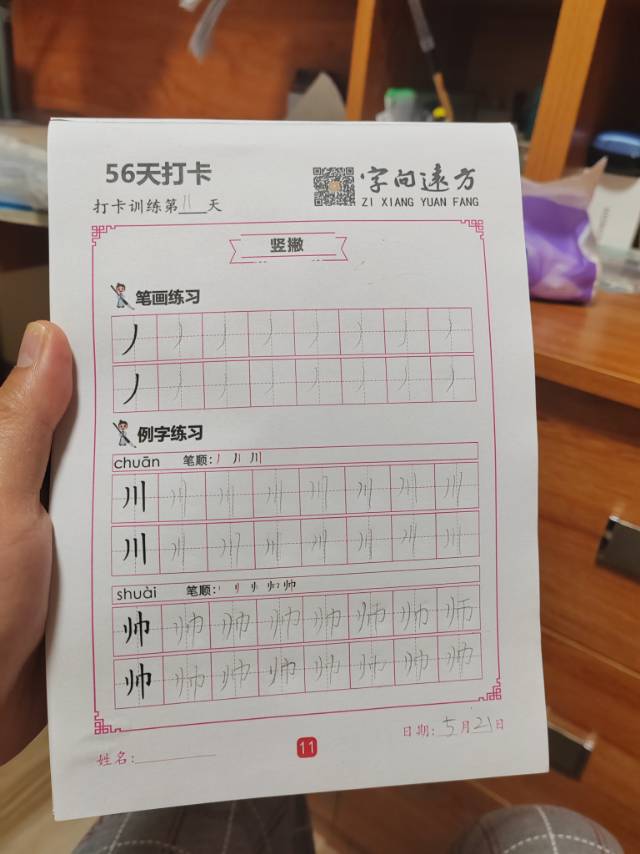 56天打卡
字向远方
打卡训练第11天
ZI XIANG YUAN FANG
竖撇
笔画练习
丿丿丿丿丿丿丿丿
丿丿丿丿丿丿丿丿
例字练习
chuān 笔顺：丿 丿丨 川
川川川川川川川川
川川川川川川川川
shuài 笔顺： 帅
帅帅帅帅帅帅帅帅
帅帅帅帅帅帅帅帅
日期：5月21日
姓名：
11